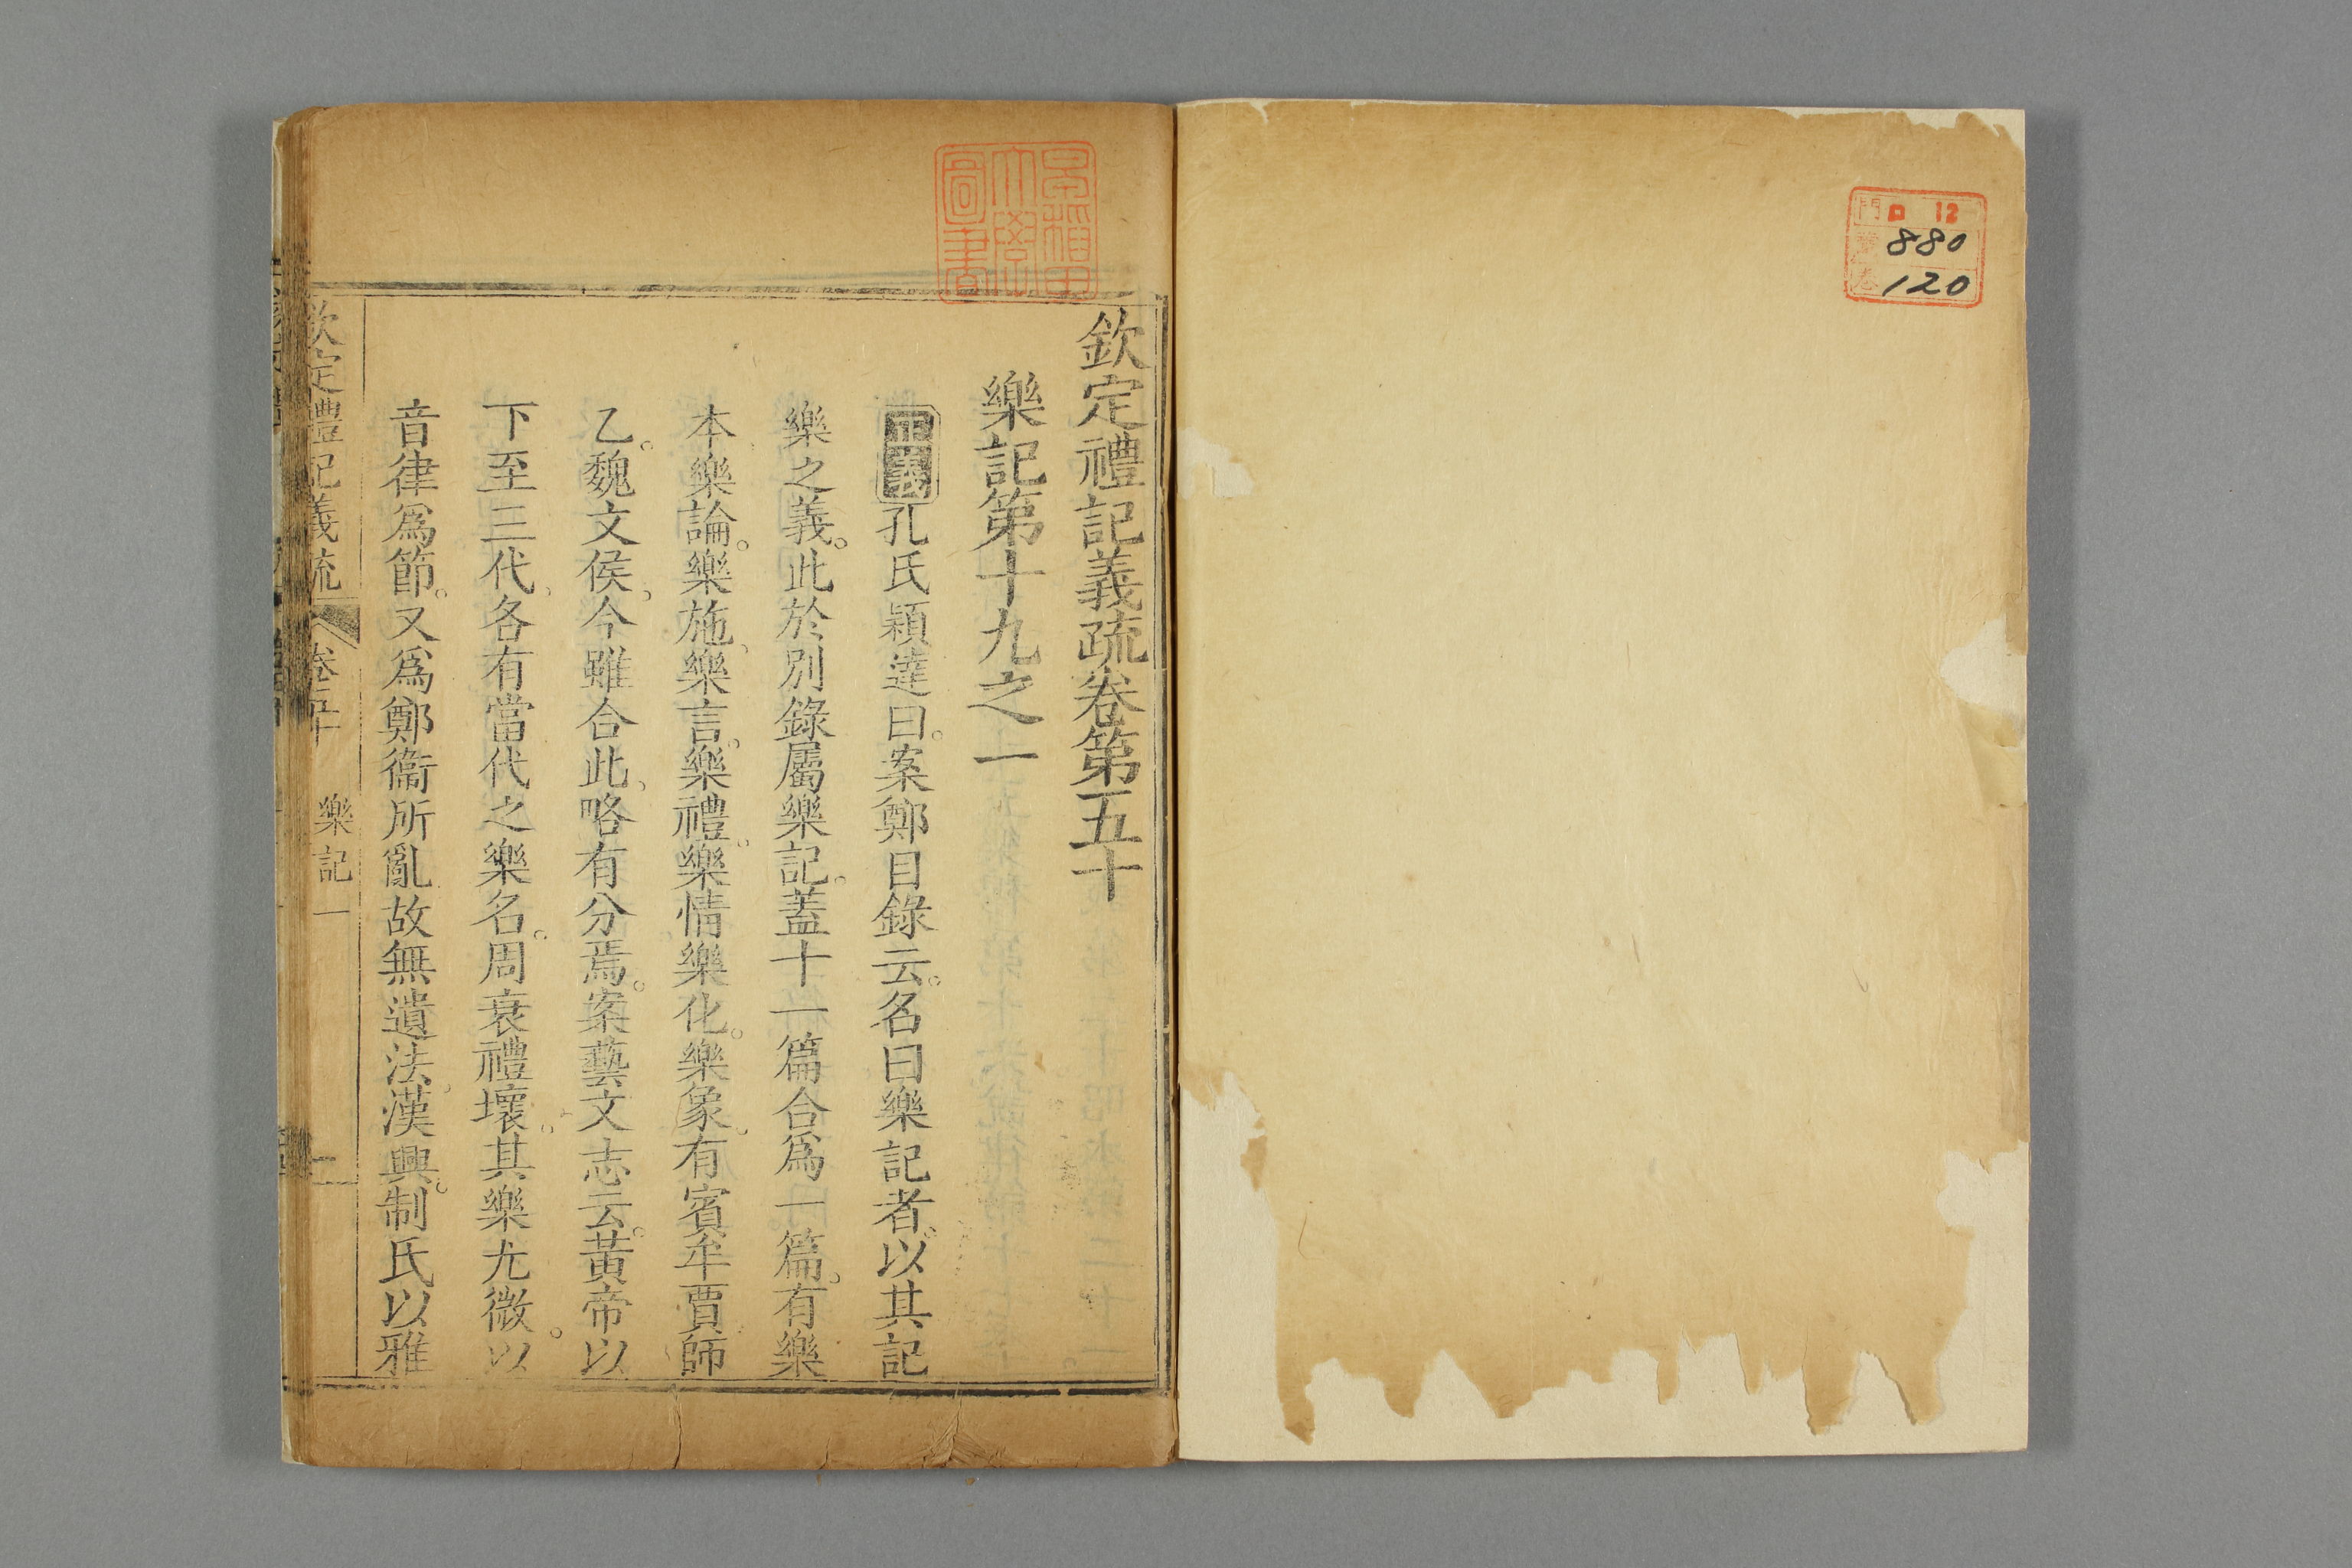 門 ロ 12
880
卷 120
早稲田大學圖書
欽定禮記義疏卷第五十
樂記第十九之一
正義孔氏穎達曰。案鄭目錄云。名曰樂記者。以其記
樂之義。此於別錄屬樂記。蓋十一篇合爲一篇。有樂
本樂論。樂施、樂言。樂禮。樂情樂化。樂象。有賓牟賈師
乙。魏文侯、今雖合此、略有分焉。案藝文志云。黃帝以
下至三代、各有當代之樂名。周衰禮壞。其樂尤微。以
音律爲節。又爲鄭衞所亂故無遺法、漢興。制氏以雅
欽定禮記義疏 卷五十 樂記一 一